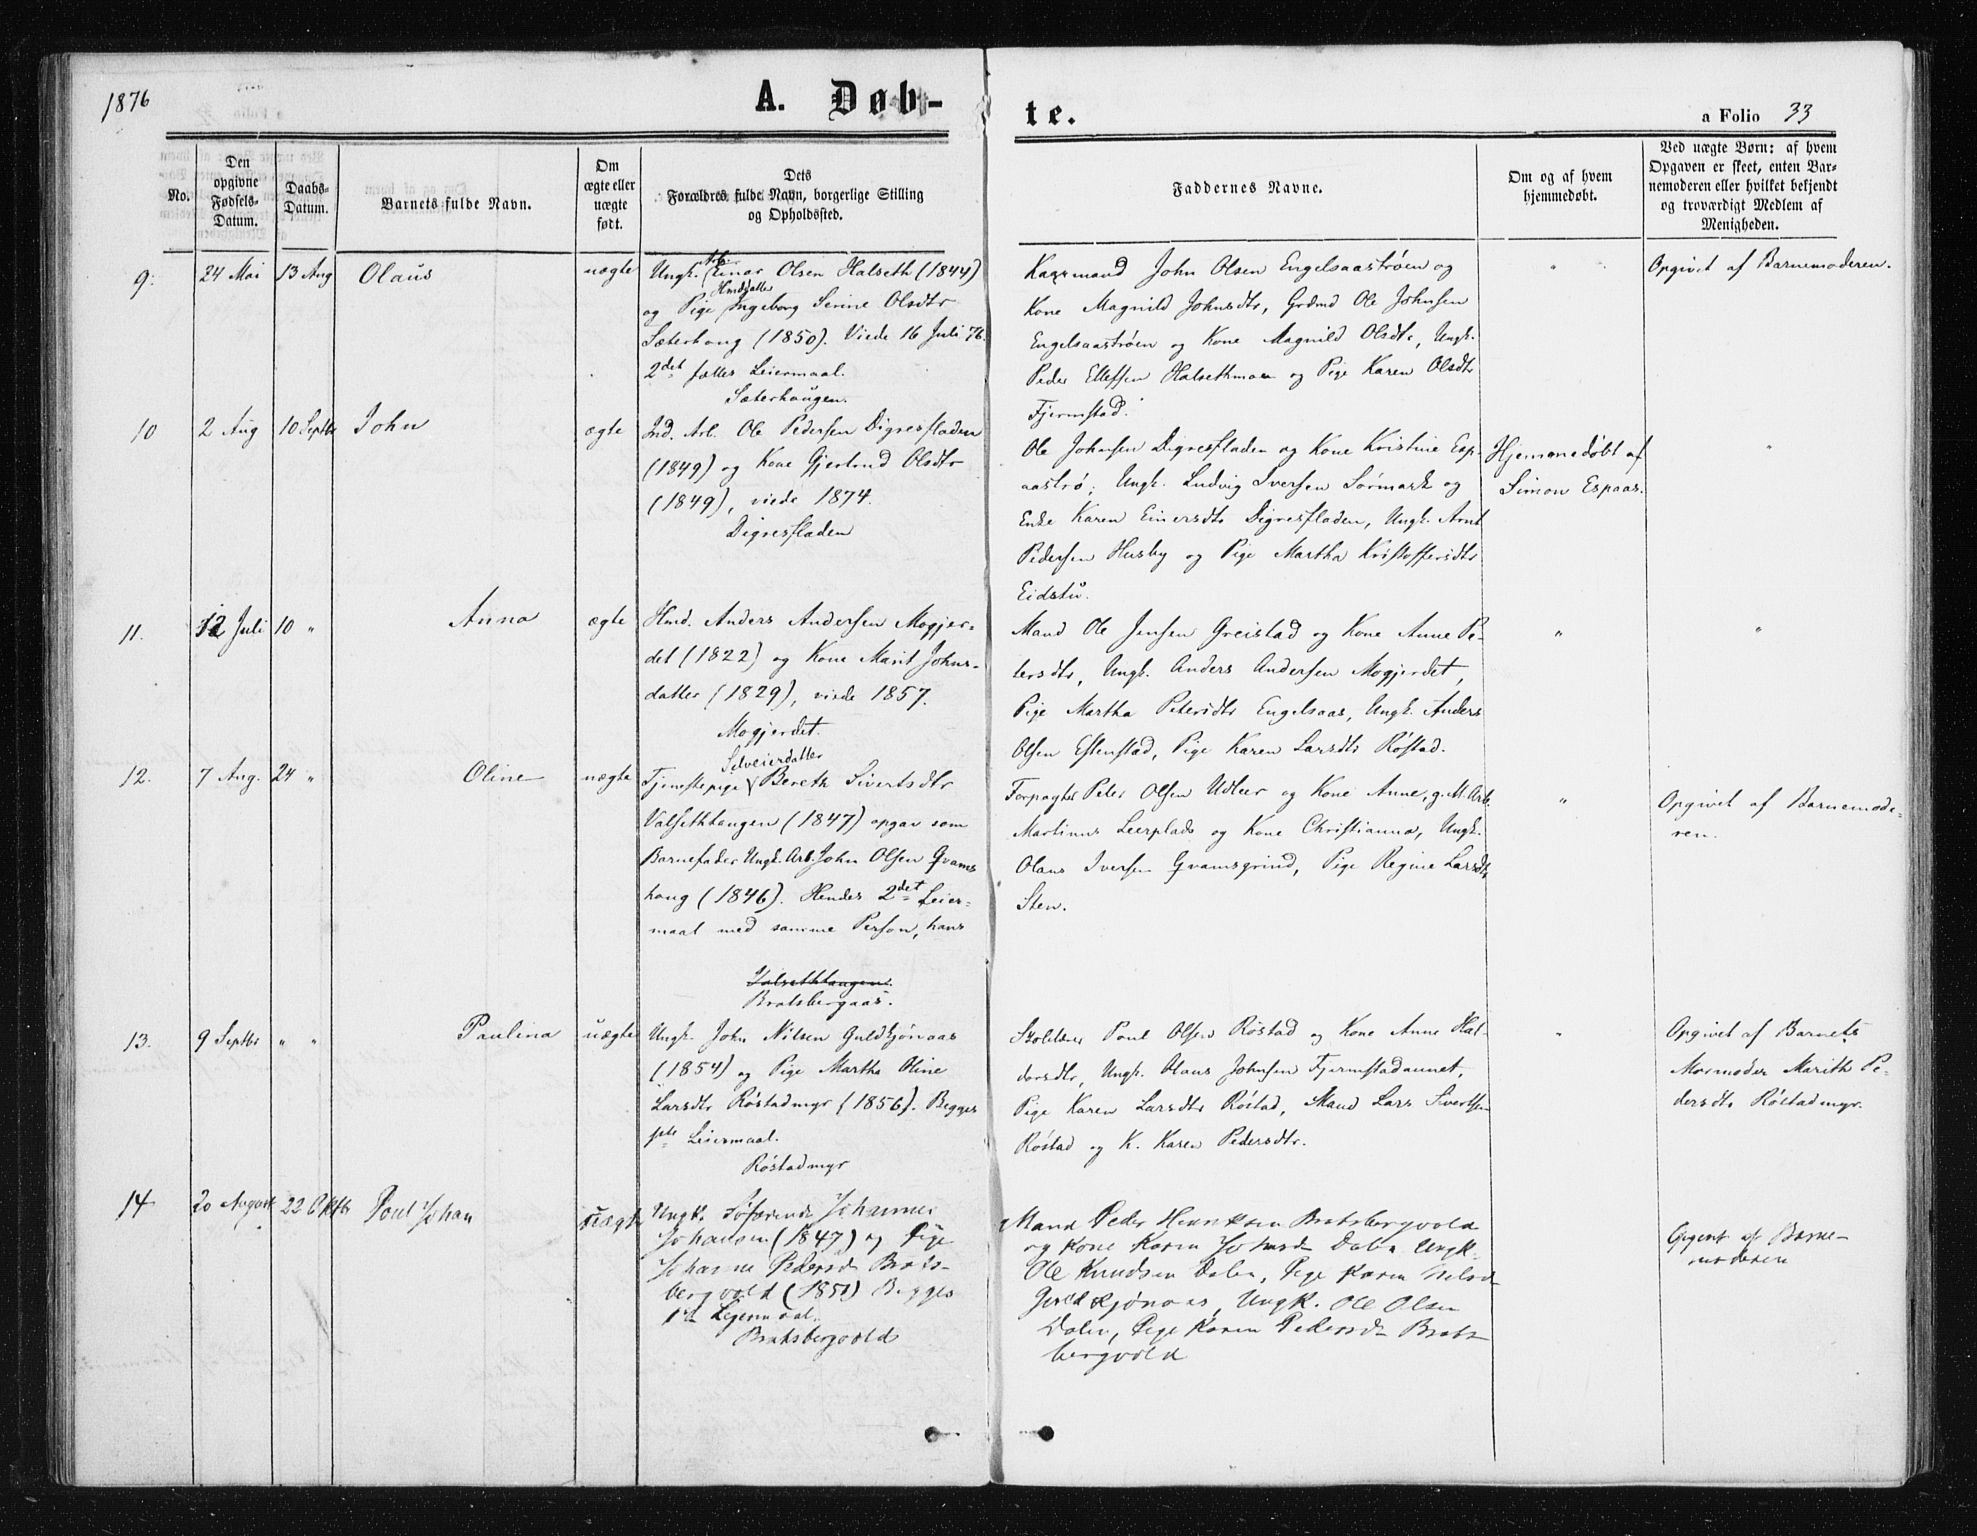 1876
A. Døb-
te.
a Folio 33
No.
Den
opgivne
Fødsels-
Datum.
Daabs-
Datum.
Barnets fulde Navn.
Om
ægte eller
uægte
født.
Dets
Forældres fulde Navn, borgerlige Stilling
og Opholdssted.
Faddernes Navne.
Om og af hvem
hjemmedøbt.
Ved uægte Børn: af hvem
Opgaven er skeet, enten Bar-
nemoderen eller hvilket bekjendt
og troværdigt Medlem af
Menigheden.
9.
24 Mai
13 Aug
Olaus
uægte
Arb.
Ungk. Einar Olsen Halseth (1844)
Hmdsdatter
og Pige Ingeborg Serine Olsdtr
Sæterhaug (1850). Viede 16 Juli 76.
2det fælles Leiermaal.
Sæterhaugen.
Kaarmand John Olsen Engelsaastrøen og
Kone Magnild Johnsdtr, Grdmd Ole Johnsen
Engelsaastrøen og Kone Magnild Olsdtr, Ungk.
Peder Ellefsen Halsethmoen og Pige Karen Olsdtr
Fjermstad.
"
Opgivet af Barnemoderen.
10
2 Aug
10 Septbr
John
ægte
Ind. Arb. Ole Pedersen Digresfladen
(1849) og Kone Gjertrud Olsdtr
(1849), viede 1874.
Digresfladen
Ole Johnsen Digresfladen og Kone Kristine Esp-
aastrø, Ungk. Ludvig Iversen Sørmark og
Enke Karen Einersdtr Digresfladen, Ungk. Arnt
Pedersen Husby og Pige Martha Kristoffersdtr
Eidstu.
Hjemmedøbt af
Simon Espaas.
"
11.
12 Juli
10 "
Anna
ægte
Hmd. Anders Andersen Mogjer-
det (1822) og Kone Marit Johns-
datter (1829), viede 1857.
Mogjerdet.
Mand Ole Jensen Greistad og Kone Anne Pe-
tersdtr, Ungk. Anders Andersen Mogjerdet,
Pige Martha Petersdtr Engelsaas, Ungk. Anders
Olsen Estenstad, Pige Karen Larsdtr Røstad.
"
"
12.
7 Aug.
24 "
Oline
uægte
Selveierdatter
Tjenestepige Bereth Sivertsdtr
Valsethtangen (1847) opgav som
Barnefader Ungk. Arb. John Olsen Qvams
haug (1846). Hendes 2det Leier-
maal med samme Person, hans
Valsethtangen.
Bratsbergaas.
Forpagter Peter Olsen Udleer og Kone Anne, g. M. Arb.
Martinus Leerplads og Kone Christianna, Ungk.
Olaus Iversen Qvamsgrind, Pige Regine Larsdtr
Sten.
"
Opgivet af Barnemode-
ren.
13.
9 Septbr
" "
Paulina
uægte
Ungk. John Nilsen Guldkjønaas
(1854) og Pige Martha Oline
Larsdtr Røstadmyr (1856). Begges
1ste Leiermaal.
Røstadmyr
Skolelærer Paul Olsen Røstad og Kone Anne Hal-
dorsdtr, Ungk. Olaus Johnsen Fjermstadaunet,
Pige Karen Larsdtr Røstad, Mand Lars Sivertsen
Røstad og K. Karen Pedersdtr.
"
Opgivet af Barnets
Mormoder Marith Pe-
dersdtr Røstadmyr.
14
20 August
22 Oktbr
Poul Johan
uægte
Ungk. Søfarende Johannes
Johansen (1847) og Pige
Johanne Pedersd Brats-
bergvold (1851) Begges
1ste Lejermaal.
Bratsbergvold
Mand Peder Henriksen Bratsbergvold
og Kone Karen Johnsd Dalen Ungk.
Ole Knudsen Dalen, Pige Karen Nilsd
Guldkjønaas, Ungk. Ole Olsen
Dalen, Pige Karen Pedersd Brats
bergvold
Opgivet af Barne-
moderen